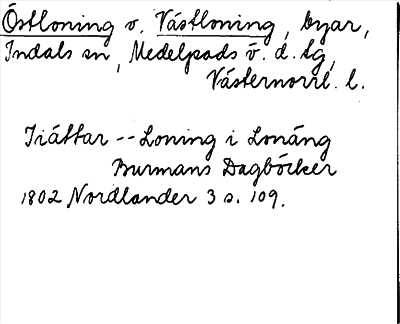 Östloning o. Västloning, byar,
Indals sn, Medelpads v. d. tg,
Västernorrl. l.
Tiättar -- Loning i Lonäng
Burmans Dagböcker
1802 Nordlander 3 s. 109.